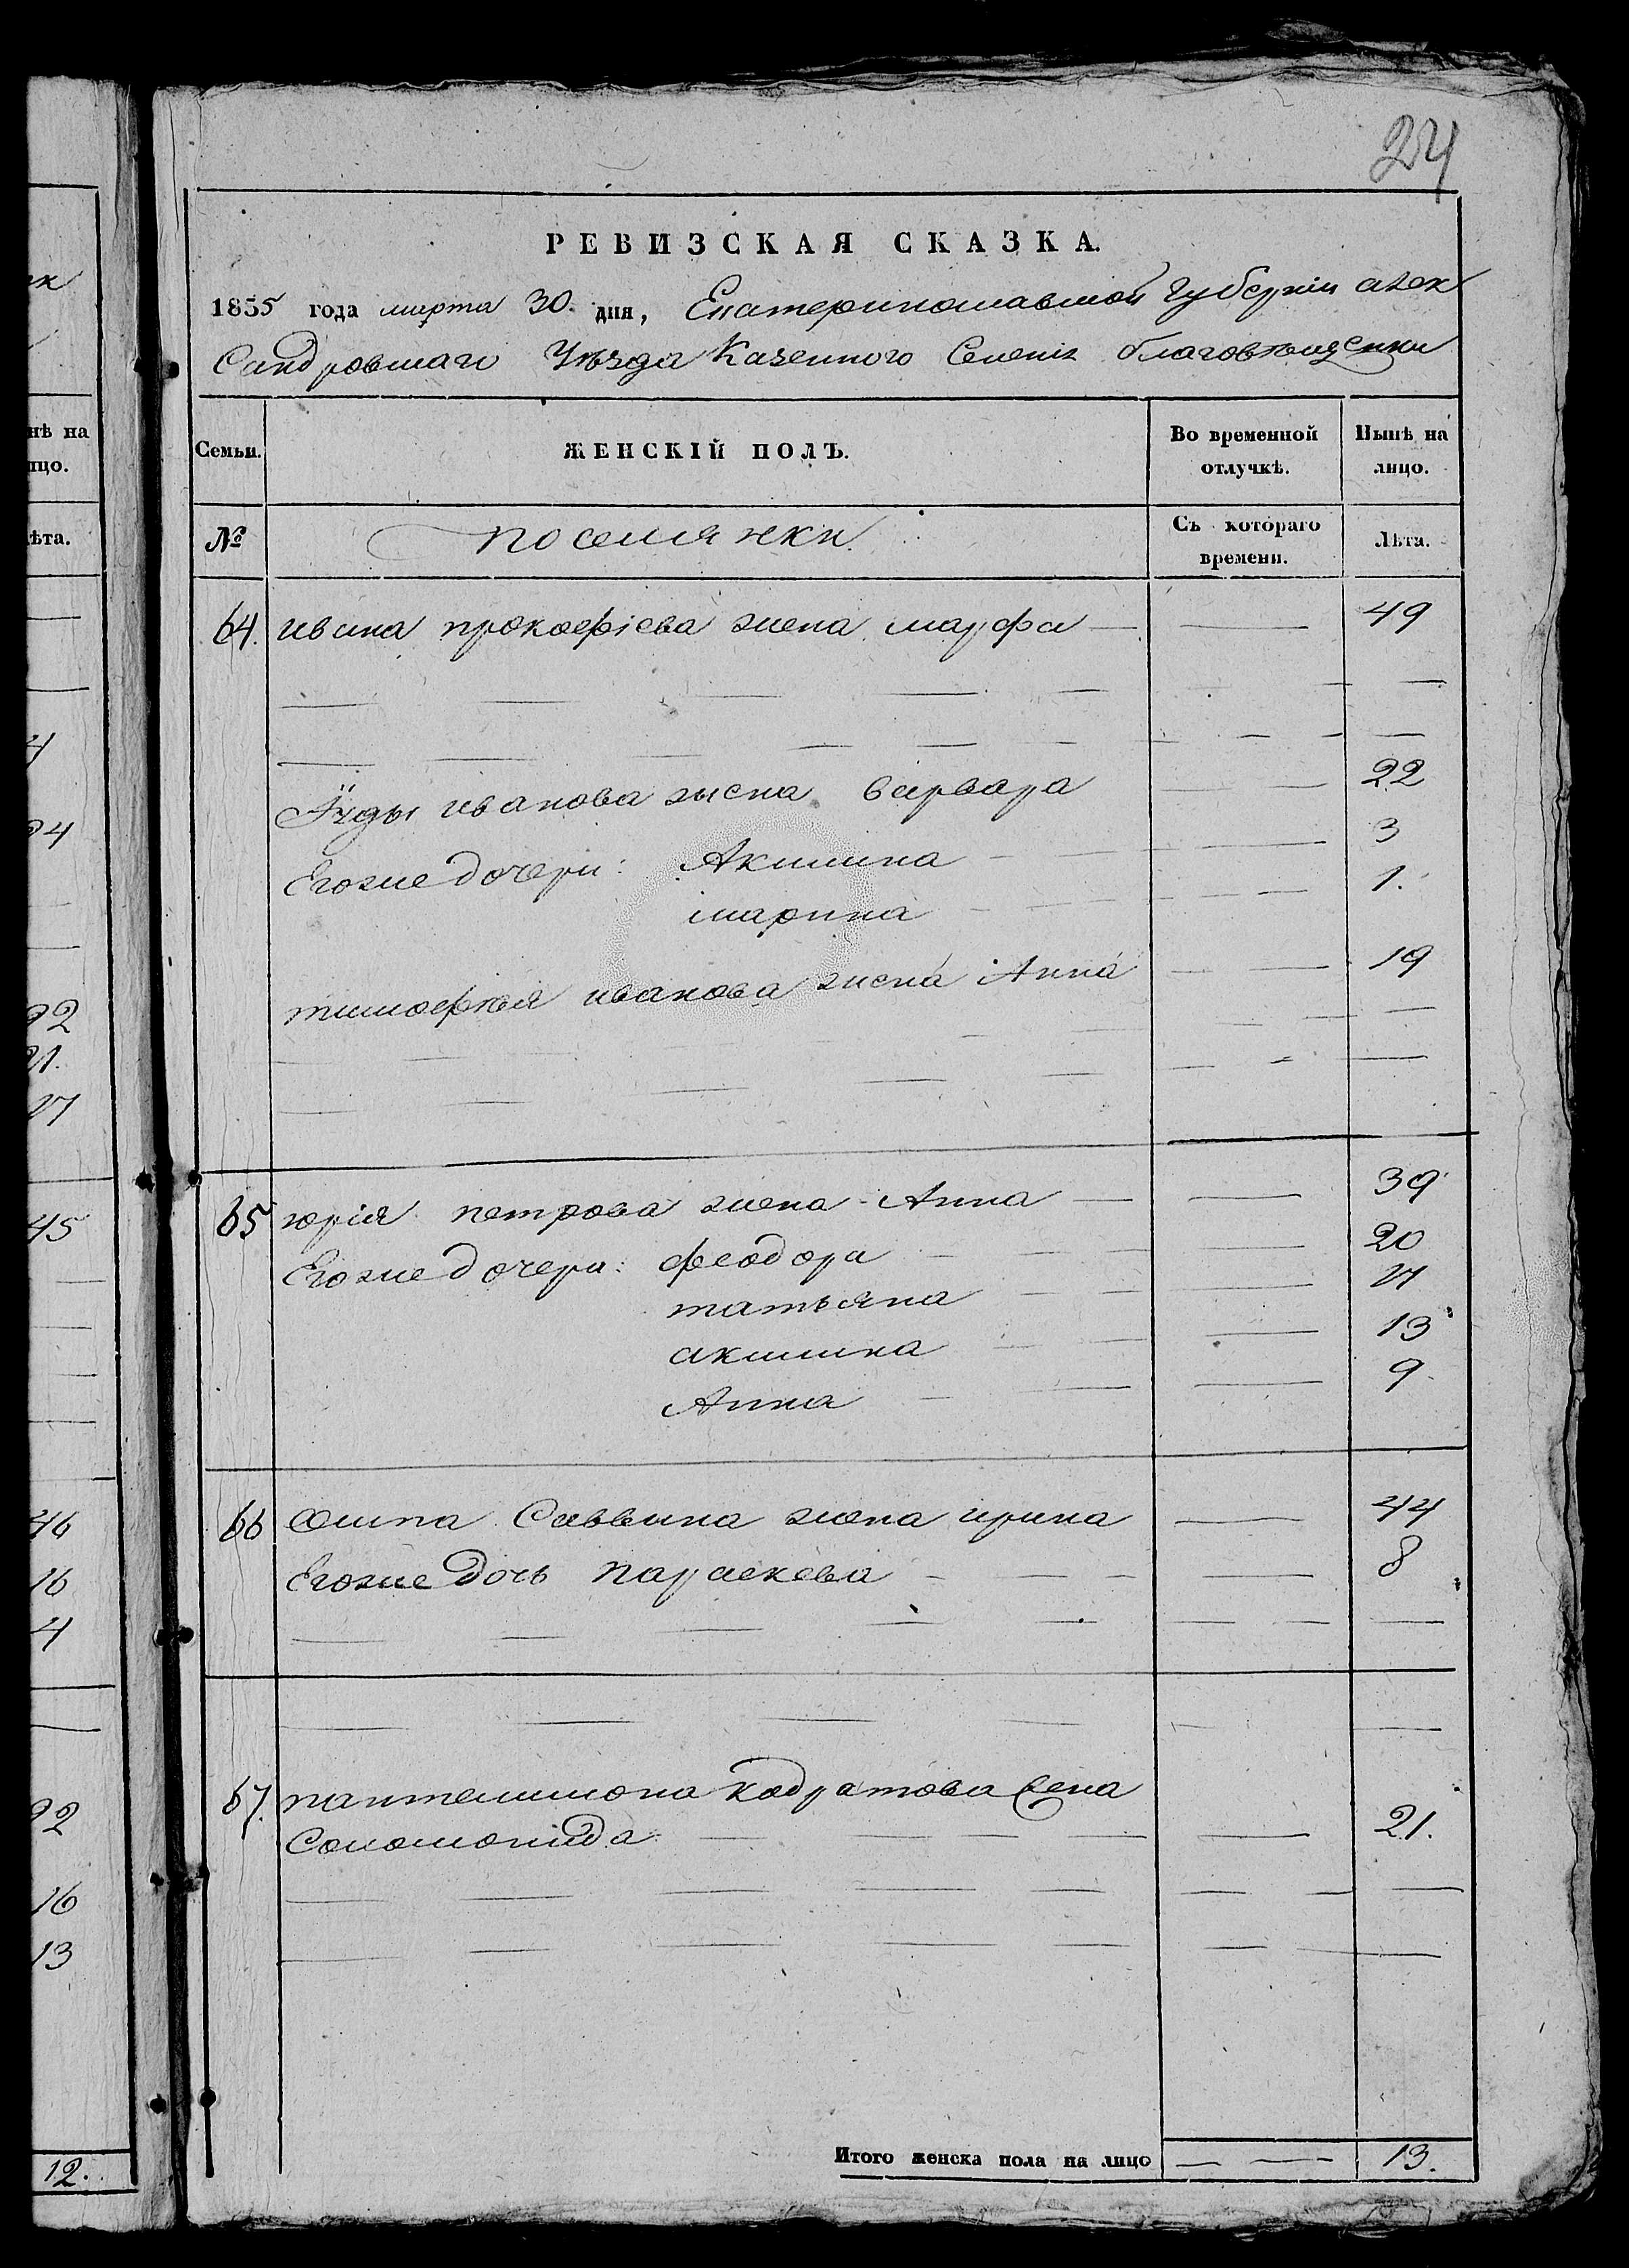 24
РЕВИЗСКАЯ СКАЗКА.
1855 года марта 30. дня, Екатеринославской губерніи алек
Сандровскаго Уѣзда Казенного Селенія благовѣщенки
Семьи. ЖЕНСКІЙ ПОЛЪ. Во временной отлучкѣ. Нынѣ на лицо.
№ поселянки. Съ котораго времени. Лѣта.
64. ивана прокофіева жена марфа — 49
Іуды иванова жена варвара 22
Егоже дочери: Акилина 3
марина 1.
тимофѣя иванова жена Анна 19
65 юрія петрова жена Анна 39
Егоже дочери: феодора 20
татьяна
акилина 13
Анна 9
66 Саввина жена ирина 44
Егоже дочь параскева 8
67. пантелимона кодратова жена
Соломонида 21.
Итого женска пола на лицо 13.
нѣ на
цо.
ѣта.
4
94
92
21.
27
45
46
16
4
92
16
13
12.